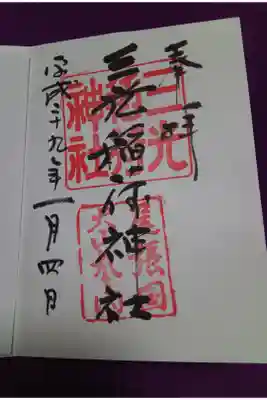 奉拝
三光稲荷神社
平成二十九年一月四日
三光
稲荷
神社
尾張国